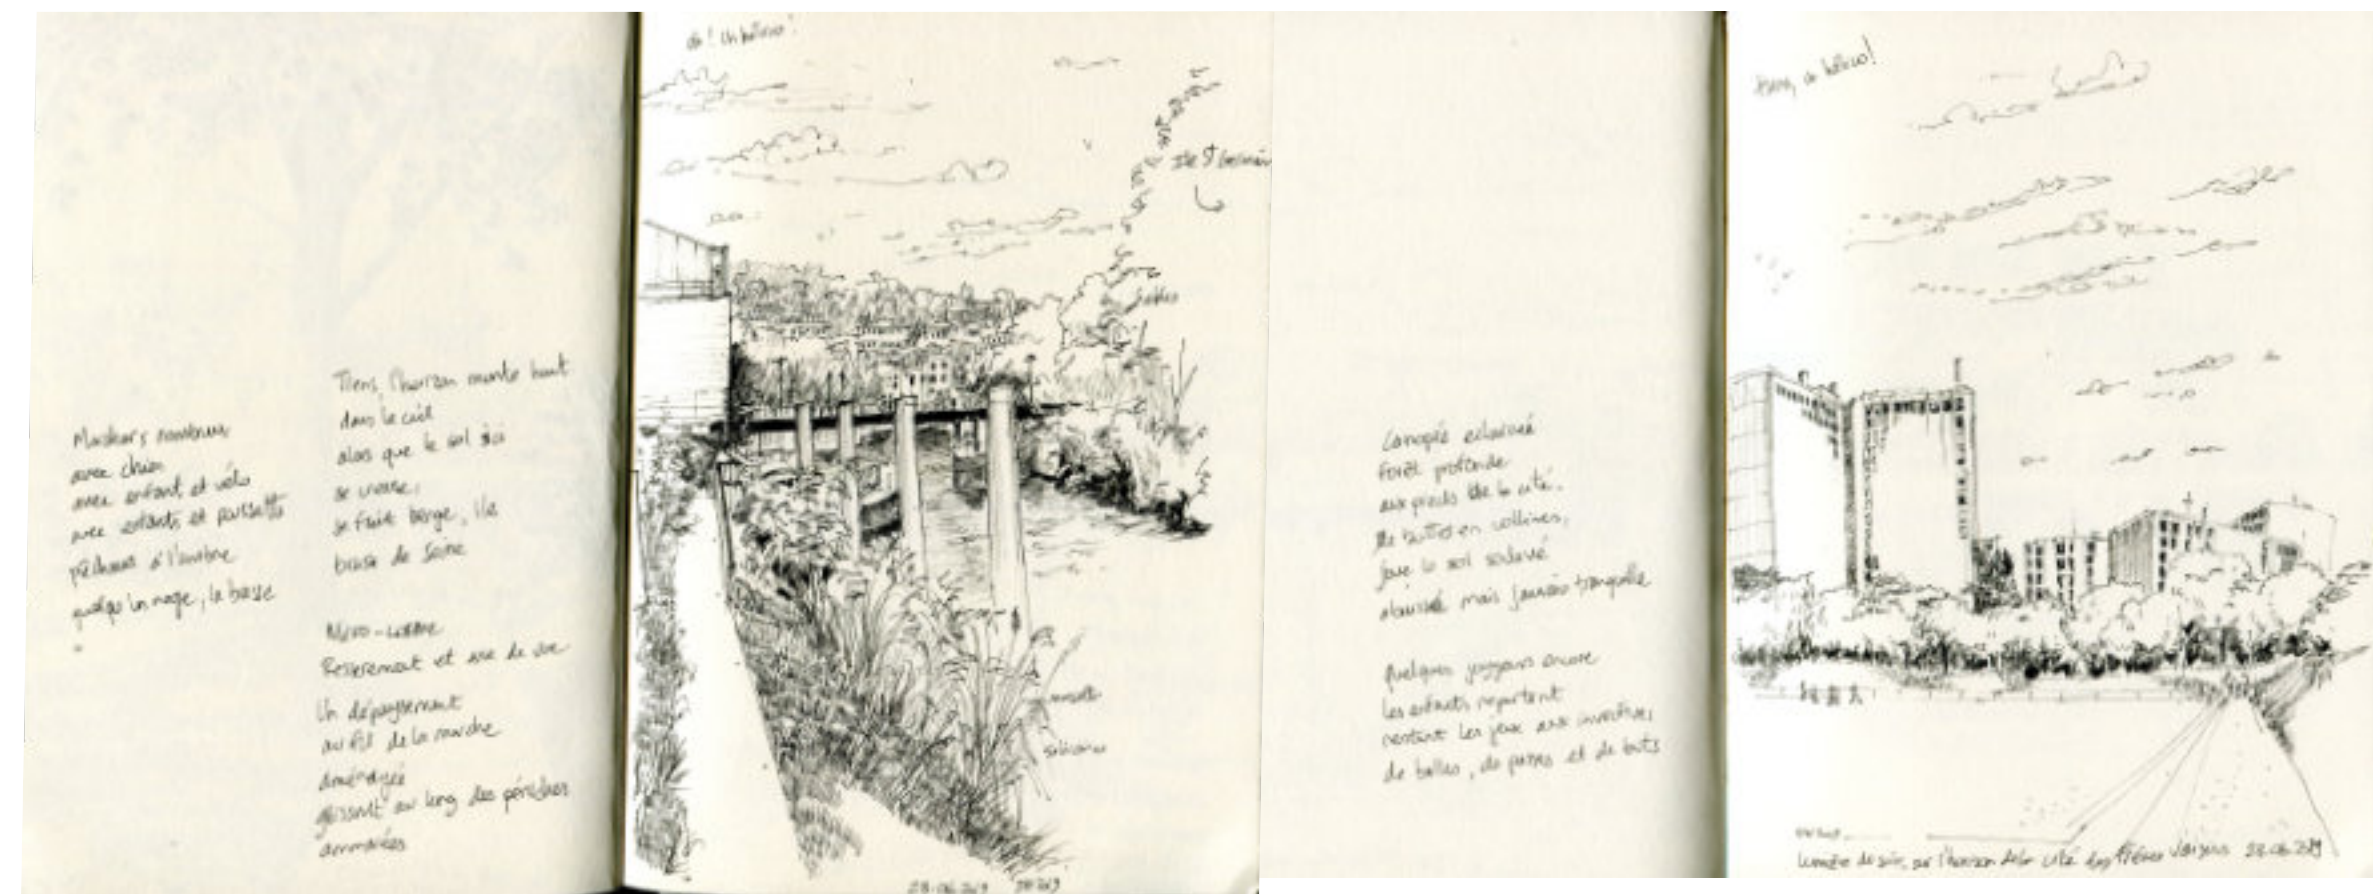 avec chien
avec enfant et vélo
avec enfants et poussette
pêcheurs à l'ombre
quelqu'un nage, la basse
Tiens, l'horizon monte haut
dans le ciel
alors que le sol ici
se creuse,
se fait berge, île
brase de Seine
Resserrement et vue de
Un dépaysement
au fil de la marche
aménagée
glissant au long des péniches
amarrées
oh ! Un hélico !
Ile St Germain
28.06.2019
Canopée éclairée
Forêt profonde
aux pieds de la cité.
De buttes en collines,
joue le sol soulevé
mais jamais tranquille
Quelques joggeurs encore
les enfants repartent
restent les jeux aux invectives
de balles, de passes et de buts
Tiens, un hélico !
Lumière du soir, sur l'horizon de la cité des Frères Voisins 28.06.2019